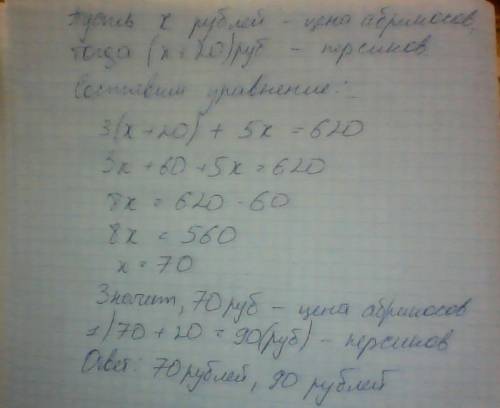 Пусть x рублей - цена абрикосов,
тогда (x+20)руб - персиков.
Составим уравнение:
3(x+20) + 5x = 620
3x+60+5x=620
8x = 620-60
8x = 560
x = 70
Значит, 70 руб - цена абрикосов
1)70+20=90(руб) - персиков
Ответ: 70 рублей, 90 рублей